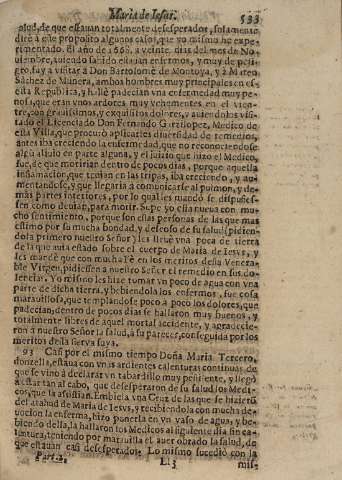 Maria de Iesus. 533
alud, de que estauan totalmente desesperados, solamente
diré à este proposito algunos casos, que yo mismo he expe-
rimentado. El año de 1668. a veinte dias del mes de No-
uiembre, auiendo sabido estauan enfermos, y muy de peli-
gro, fuy a visitar à Don Bartolomè de Montoya, y à Mateo
Sãchez de Munera, ambos hombres muy principales en es-
esta Republica, y hallè padecian vna enfermedad muy pe-
nosa, que eran vnos ardores muy vehementes en el vien-
tre, con grauissimos, y exquisitos dolores, y auiendolos visi-
tado el Licenciado Don Fernando Garzilopez, Medico de
esta Villa, que procurò aplicarles diuersidad de remedios,
antes iba creciendo la enfermedad, que no reconociendose
algũ aliuio en parte alguna, y el juizio que hizo el Medico,
fue, de que moririan dentro de pocos dias, porque aquella
inflamacion, que tenian en las tripas, iba creciendo, y au-
mentandose, y que llegaria à comunicarse al pulmon, y de-
màs partes interiores, por lo qual les mandò se dispusies-
sen como deuian, para morir. Supe yo esta nueua con mu-
cho sentimiento, porque son estas personas de las que mas
estimo por su mucha bondad, y deseoso de su salud (pidien-
dola primero nuestro Señor) les lleuè vna poca de tierra
de la que auia estado sobre el cuerpo de Maria de Iesvs, y
les mandè que con mucha Fè en los meritos desta Venera-
ble Virgen, pidiessen à nuestro Señor el remedio en sus do-
lencias. Yo mismo les hize tomar vn poco de agua con vna
parte de dicha tierra, y bebiendola los enfermos, fue cosa
marauillosa, que templandose poco à poco los dolores, que
padecian; dentro de pocos dias se hallaron muy buenos, y
totalmente libres de aquel mortal accidente, y agradecie-
ron à nuestro Señor la salud, à su parecer, conseguida por los
meritos desta sierva suya.
93 Casi por el mismo tiempo Doña Maria Tercero,
donzella, estaua con vnas ardientes calenturas continuas de
que se vino à declarar vn tabardillo muy pestilente, y llegò
à estar tan al cabo, que desesperaron de su salud los Medi-
cos, que la assistian. Embiela vna Cruz de las que se hizierõ
del ataud de Maria de Iesvs, y recibiendola con mucha de-
uocion la enferma, hizo ponerla en vn vaso de agua, y be-
biendo della, la hallaron los Medicos al siguiente dia sin ca-
lentura, teniendo por marauilla el auer obrado la salud, de
que estauan casi desesperados. Lo mismo sucediò con la
Part. 2. Ll 3 mis-